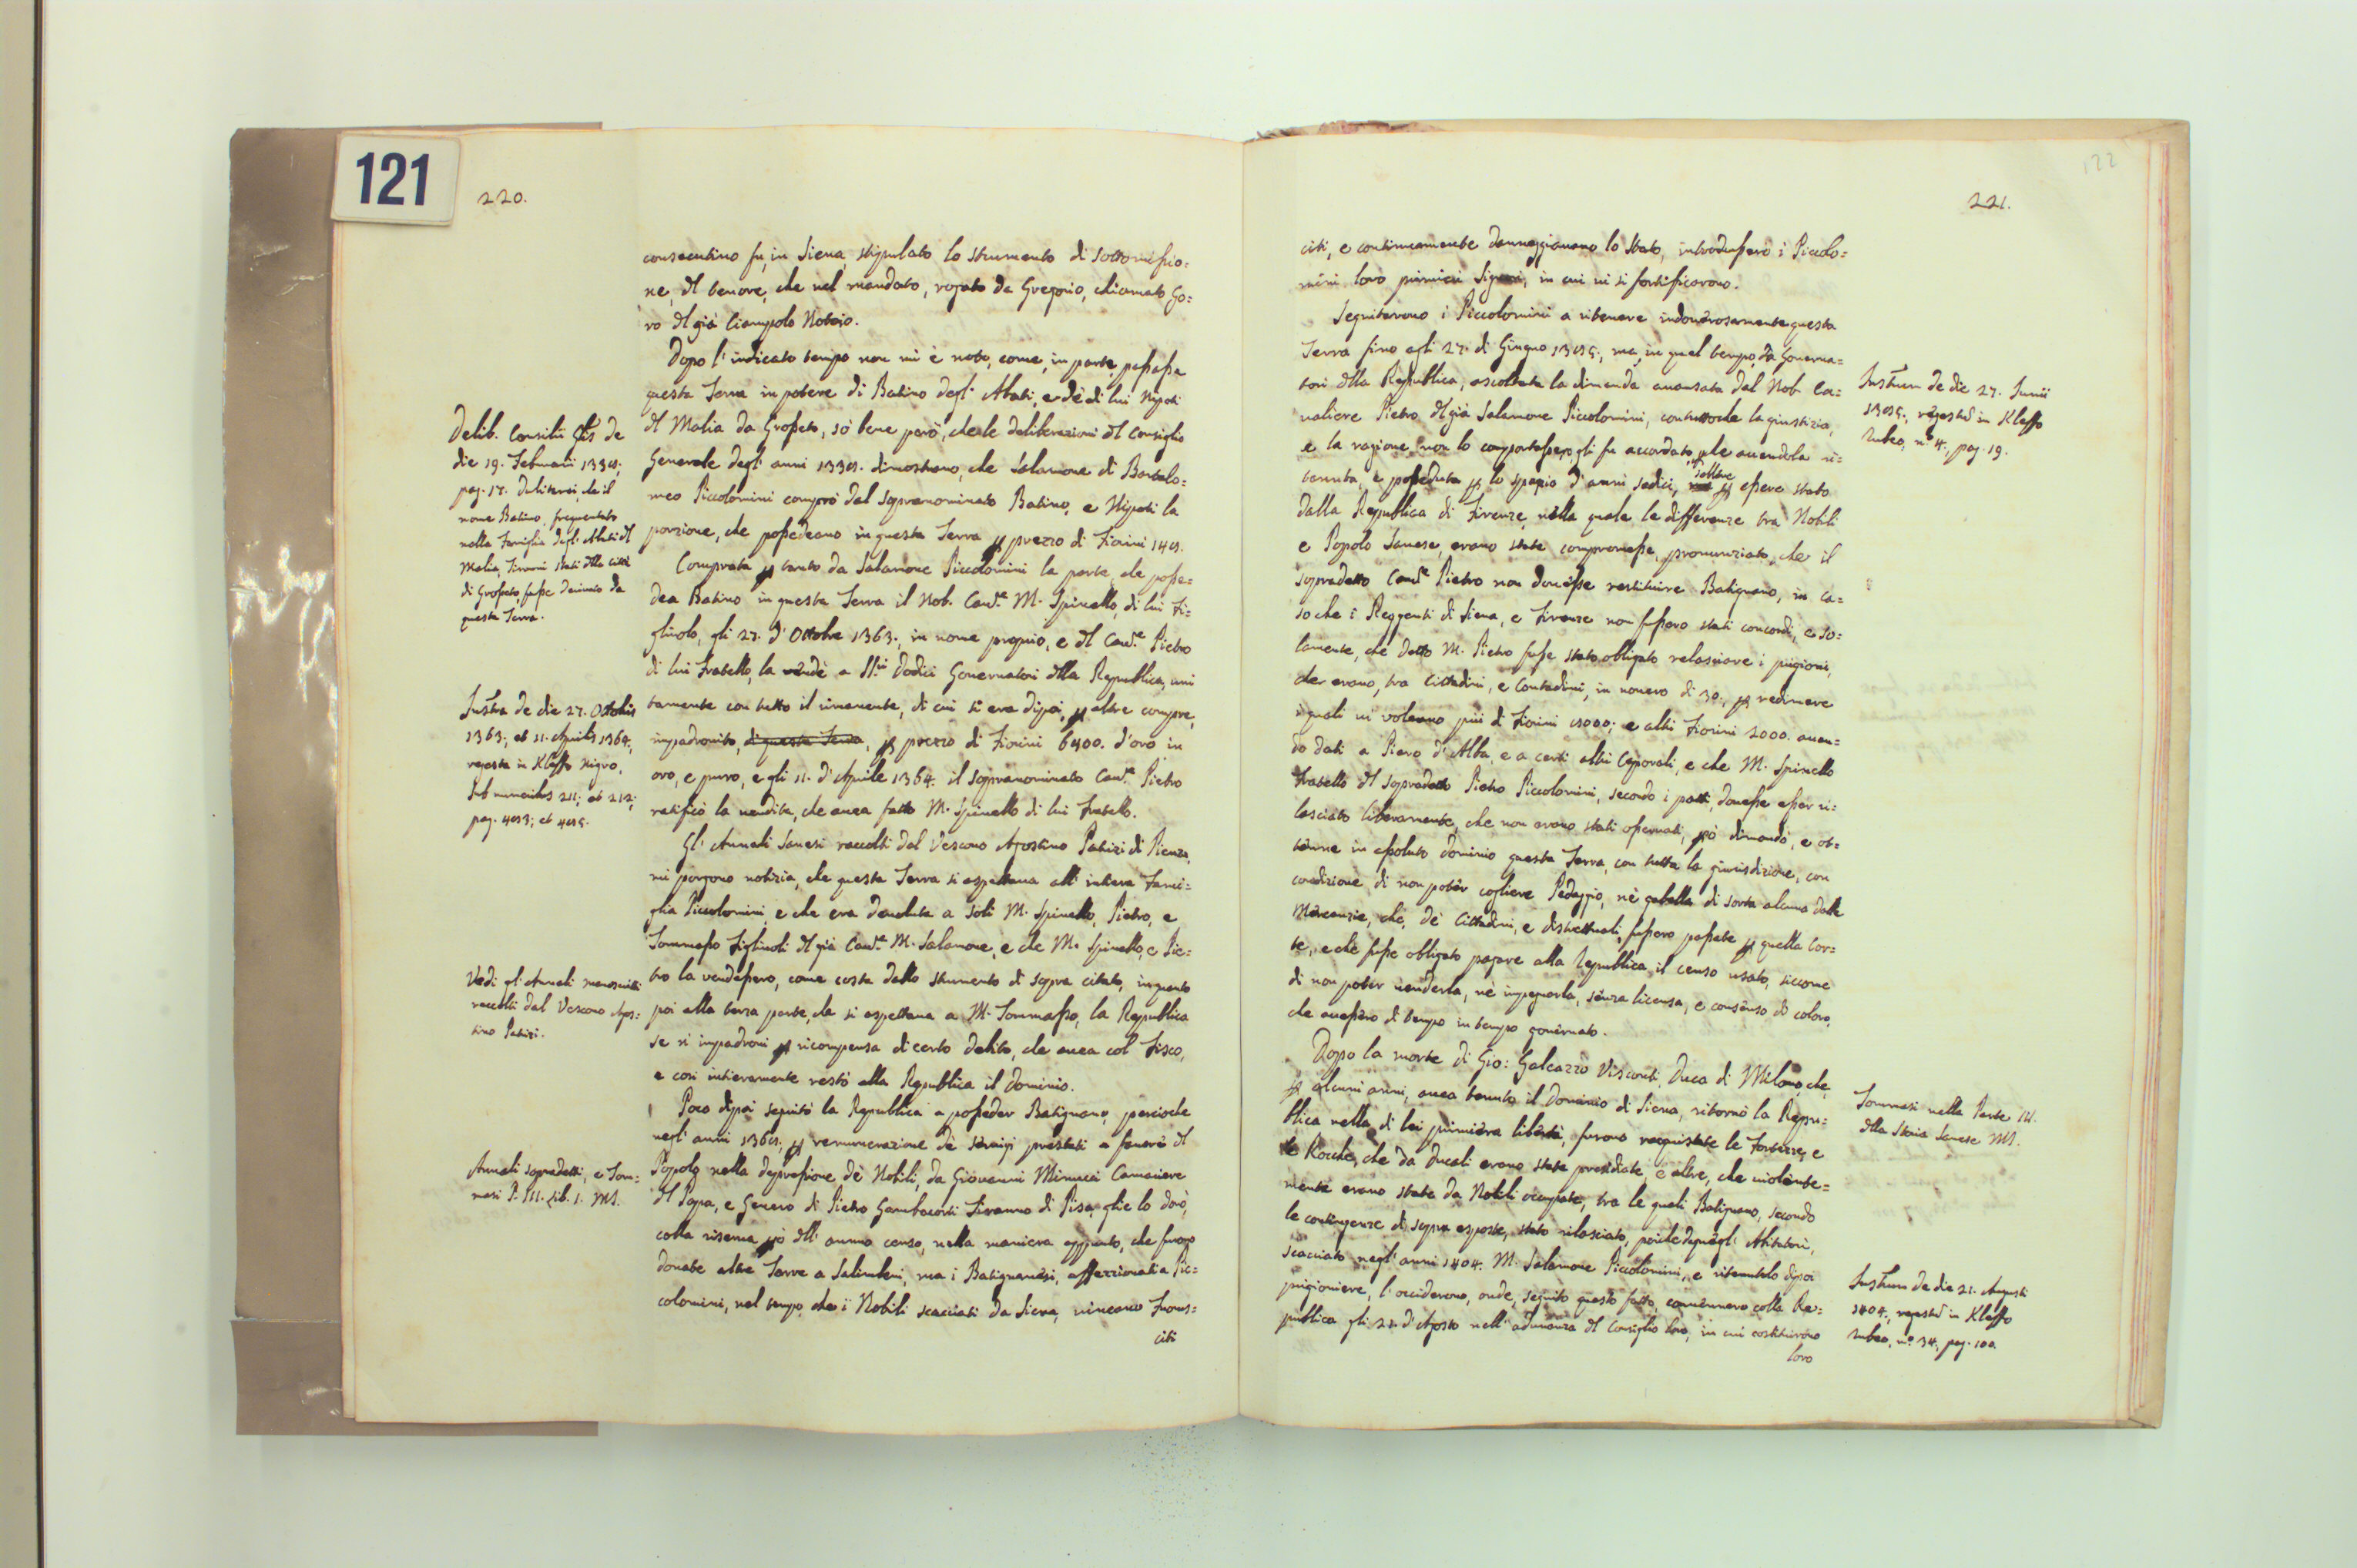 121
220.
consecutivo fu, in Siena, stipulato lo strumento di sottomissio=
ne dl tenore, che nel mandato, rogato da Gregorio, chiamato Go=
ro dl già Ciampolo Notaio.
Dopo l'indicato tempo non mi è noto, come, in parte, passasse
questa Terra in potere di Batino degl'Abati, e dè di lui Nipoti
dl Malia da Grosseto, sò bene però, che le deliberazioni dl Consiglio
Generale degl'anni 133 dimostrano, che Salamone di Bartolo=
meo Piccolomini comprò dal sopranominato Batino, e Nipoti la
porzione, che possedeano in questa Terra p prezzo di Fiorini
Comprata p tanto da Salamone Piccolomini la parte, che posse=
dea Batino in questa Terra il Nob. Cav.e M. Spinello, di lui Fi=
gliuolo, gli 27. d'Ottobre 1363., in nome proprio, e dl Cav.e Pietro
di lui Fratello, la vendè a SS.ri Dodici Governatori dlla Republica, uni
tamente con tutto il rimanente, di cui si era dipoi, p altre compre,
impadronito, di questa Terra, p prezzo di Fiorini 6400. d'oro in
oro, e puro, e gli 11. d'Aprile 1364. il sopranominato Cav.e Pietro
ratificò la vendita, che avea fatto M. Spinello di lui Fratello.
Gl'Annali Sanesi raccolti dal Vescovo Agostino Patrizi di Pienza,
mi porgono notizia, che questa Terra si aspettava all'intiera Fami=
glia Piccolomini, e che era devoluta a soli M. Spinello, Pietro, e
Tommasso Figliuoli dl già Cav.e M. Salamone, e che M. Spinello, e Pie=
tro la vendessero, come costa dallo strumento di sopra citato, in quanto
poi alla terza parte, che si aspettava a M. Tommasso, la Republica
se ne impadronì p ricompensa di certo delito, che avea col Fisco,
e così intieramente restò alla Republica il dominio.
Poco dipoi seguitò la Republica a posseder Batignano, perciochè
negl'anni p remunerazione dè servigi prestati a favore dl
Popolo nella depressione dè Nobili, da Giovanni Minucci Cameriere
dl Papa, e Genero di Pietro Gambacorti Tiranno di Pisa, glie lo donò,
colla riserva pò dll'annuo censo, nella maniera appunto, che furono
donate altre Terre a Salimbeni, ma i Batignanesi, affezzionati a Pic=
colomini, nel tempo, che i Nobili scacciati da Siena, viveano Fuorus=
citi
Delib. Consilii Glis de
die 19. Februarii
pag. 17. che il
nome Batino, frequentato
nella Famiglia degl'Abati dl
Malia, Tiranni stati dlla Città
di Grosseto, fusse derivato da
questa Terra.
Instra de die 27. Octobris
1363., et 11. Aprilis 1364.,
regesta in Kleffo Nigro,
sub numeris 211; et 212;
pag.
Vedi gl'Annali manoscritti
raccolti dal Vescovo Agos=
tino Patrizi.
Annali sopradetti, e Tom=
masi P. III. Lib. 1. MS.
122
221.
citi, e continuamente danneggiavano lo Stato, introdussero i Piccolo=
mini loro primieri Signori, in cui vi si fortificorono.
Seguitorono i Piccolomini a ritenere indoverosamente questa
Terra fino agli 27. di Giugno ma, in quel tempo, da Governa=
tori dlla Republica, ascoltata la dimanda avansata dal Nob. Ca=
valiere Pietro dl già Salamone Piccolomini, contuttoche la giustizia,
e la ragione non lo comportasse, gli fu accordato, ple avendola ri=
tenuta, e posseduta p lo spazio d'anni sedici, p essere stato
dalla Republica di Firenze, nella quale le differenze tra Nobili
e Popolo Sanese, erano state compromesse, pronunziato, che il
sopradetto Cav.e Pietro non dovesse restituire Batignano, in ca=
so che i Reggenti di Siena, e Firenze non fussero stati concordi, e so=
lamente, che detto M. Pietro fusse stato obligato relassare i prigioni,
che erano, tra Cittadini, e Contadini, in novero di 30., p redimere
i quali vi voleano più di Fiorini e altri Fiorini 2000. aven=
do dati a Piero d'Alba, e a certi altri Caporali, e che M. Spinello
Fratello dl sopradetto Pietro Piccolomini, secondo i patti, dovesse esser ri=
lasciato liberamente, che non erano stati osservati, pò dimandò, e ot=
tenne in assoluto dominio questa Terra, con tutta la giurisdizione, con
condizione di non potèr cogliere Pedaggio, nè gabella di sorta alcuna dalle
Mercanzie, che, dè Cittadini, e distrettuali, fussero passate p quella Cor=
te, e che fusse obligato pagare alla Republica il censo usato, siccome
di non potèr venderla, nè impegnarla, senza licensa, e consenso di coloro,
che avessero di tempo in tempo governato.
Dopo la morte di Gio: Galeazzo Visconti, Duca di Milano, che,
p alcuni anni, avea tenuto il Dominio di Siena, ritornò la Repu=
blica nella di lei primièra libertà, furono racquistate le Fortezze, e
le Rocche, che da Ducali erano state presidiate, e altre, che violente=
mente erano state da Nobili occupate, tra le quali Batignano, secondo
le contingenze di sopra esposte, stato rilasciato, poiche dipoi gl'Abitatori,
scacciato negl'anni 1404. M. Salamone Piccolomini, e ritenutolo dipoi
prigioniere, l'occiderono, onde, seguito questo fatto, convennero colla Re=
publica gli 21. d'Agosto nell'adunanza dl Consiglio loro, in cui costituirono
loro
Instrum de die 27. Junii
regestũ in Kleffo
Rubeo, n.o 4., pag. 19.
Tommasi nella Parte III.
dlla Storia Sanese MS.
Instrum de die 21. Augusti
1404., regestũ in Kleffo
Rubeo, n.o 34., pag. 100